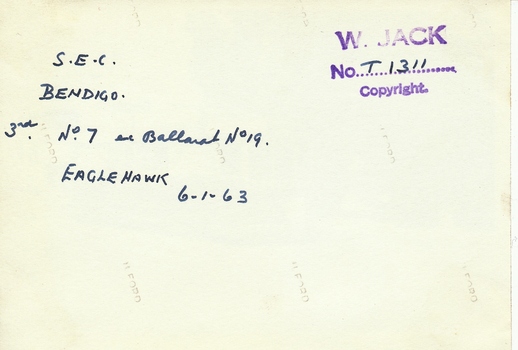 W. JACK
No. T 1311
Copyright.
S.E.C.
BENDIGO.
3rd. No. 7 ex Ballarat No 19.
EAGLEHAWK
6-1-63
ILFORD
ILFORD
ILFORD
ILFORD
ILFORD
ILFORD